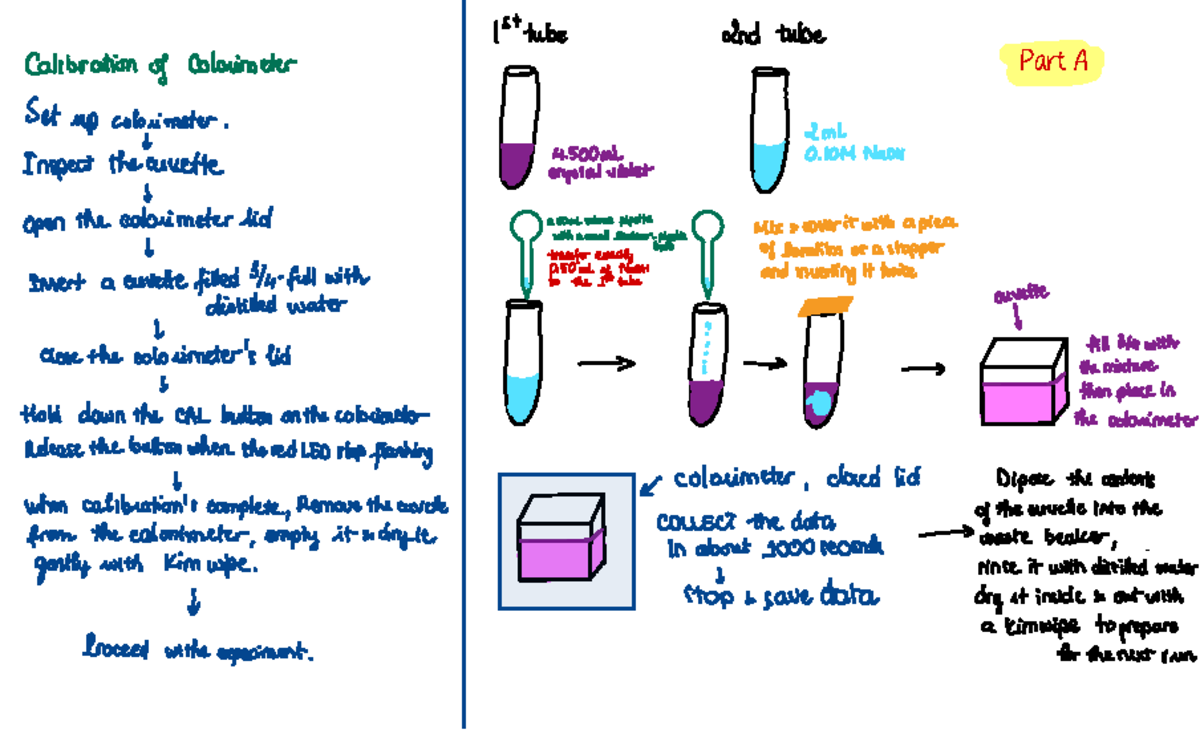 Calibration of Colourimeter
Set up colourimeter.
Inspect the cuvette
Open the colourimeter lid
Insert a cuvette filled 3/4-full with
distilled water
Close the colourimeter's lid
Hold down the CAL button on the colourimeter
Release the button when the red LED stop flashing
when calibration's complete, Remove the cuvette
from the colourimeter, empty it & dry it
gently with Kim wipe.
Proceed w the experiment.
1st tube
2nd tube
Part A
4.500mL
crystal violet
2mL
0.10M NaOH
with a small
transfer exactly
0.50 mL of NaOH
to the 1st tube
Mix & cover it with a piece
of Parafilm or a stopper
and inverting it twice
cuvette
fill 3/4 with
the mixture
then place in
the colourimeter
colourimeter, closed lid
COLLECT the data
in about 1000 seconds
Stop & save data
Dipose the contents
of the cuvette into the
waste beaker,
rinse it with distilled water
dry it inside & out with
a kimwipe to prepare
for the next run